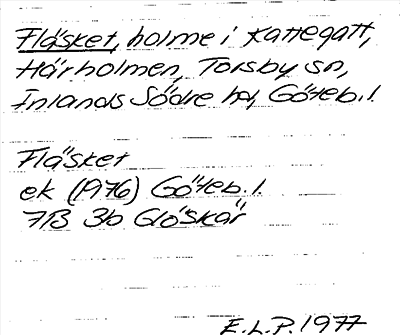 Fläsket, holme i Kattegatt,
Härholmen, Torsby sn,
Inlands Södre hd, Göteb. l.
Fläsket
ek (1976) Göteb. l.
7B 3b Glöskär
E.L.P. 1977